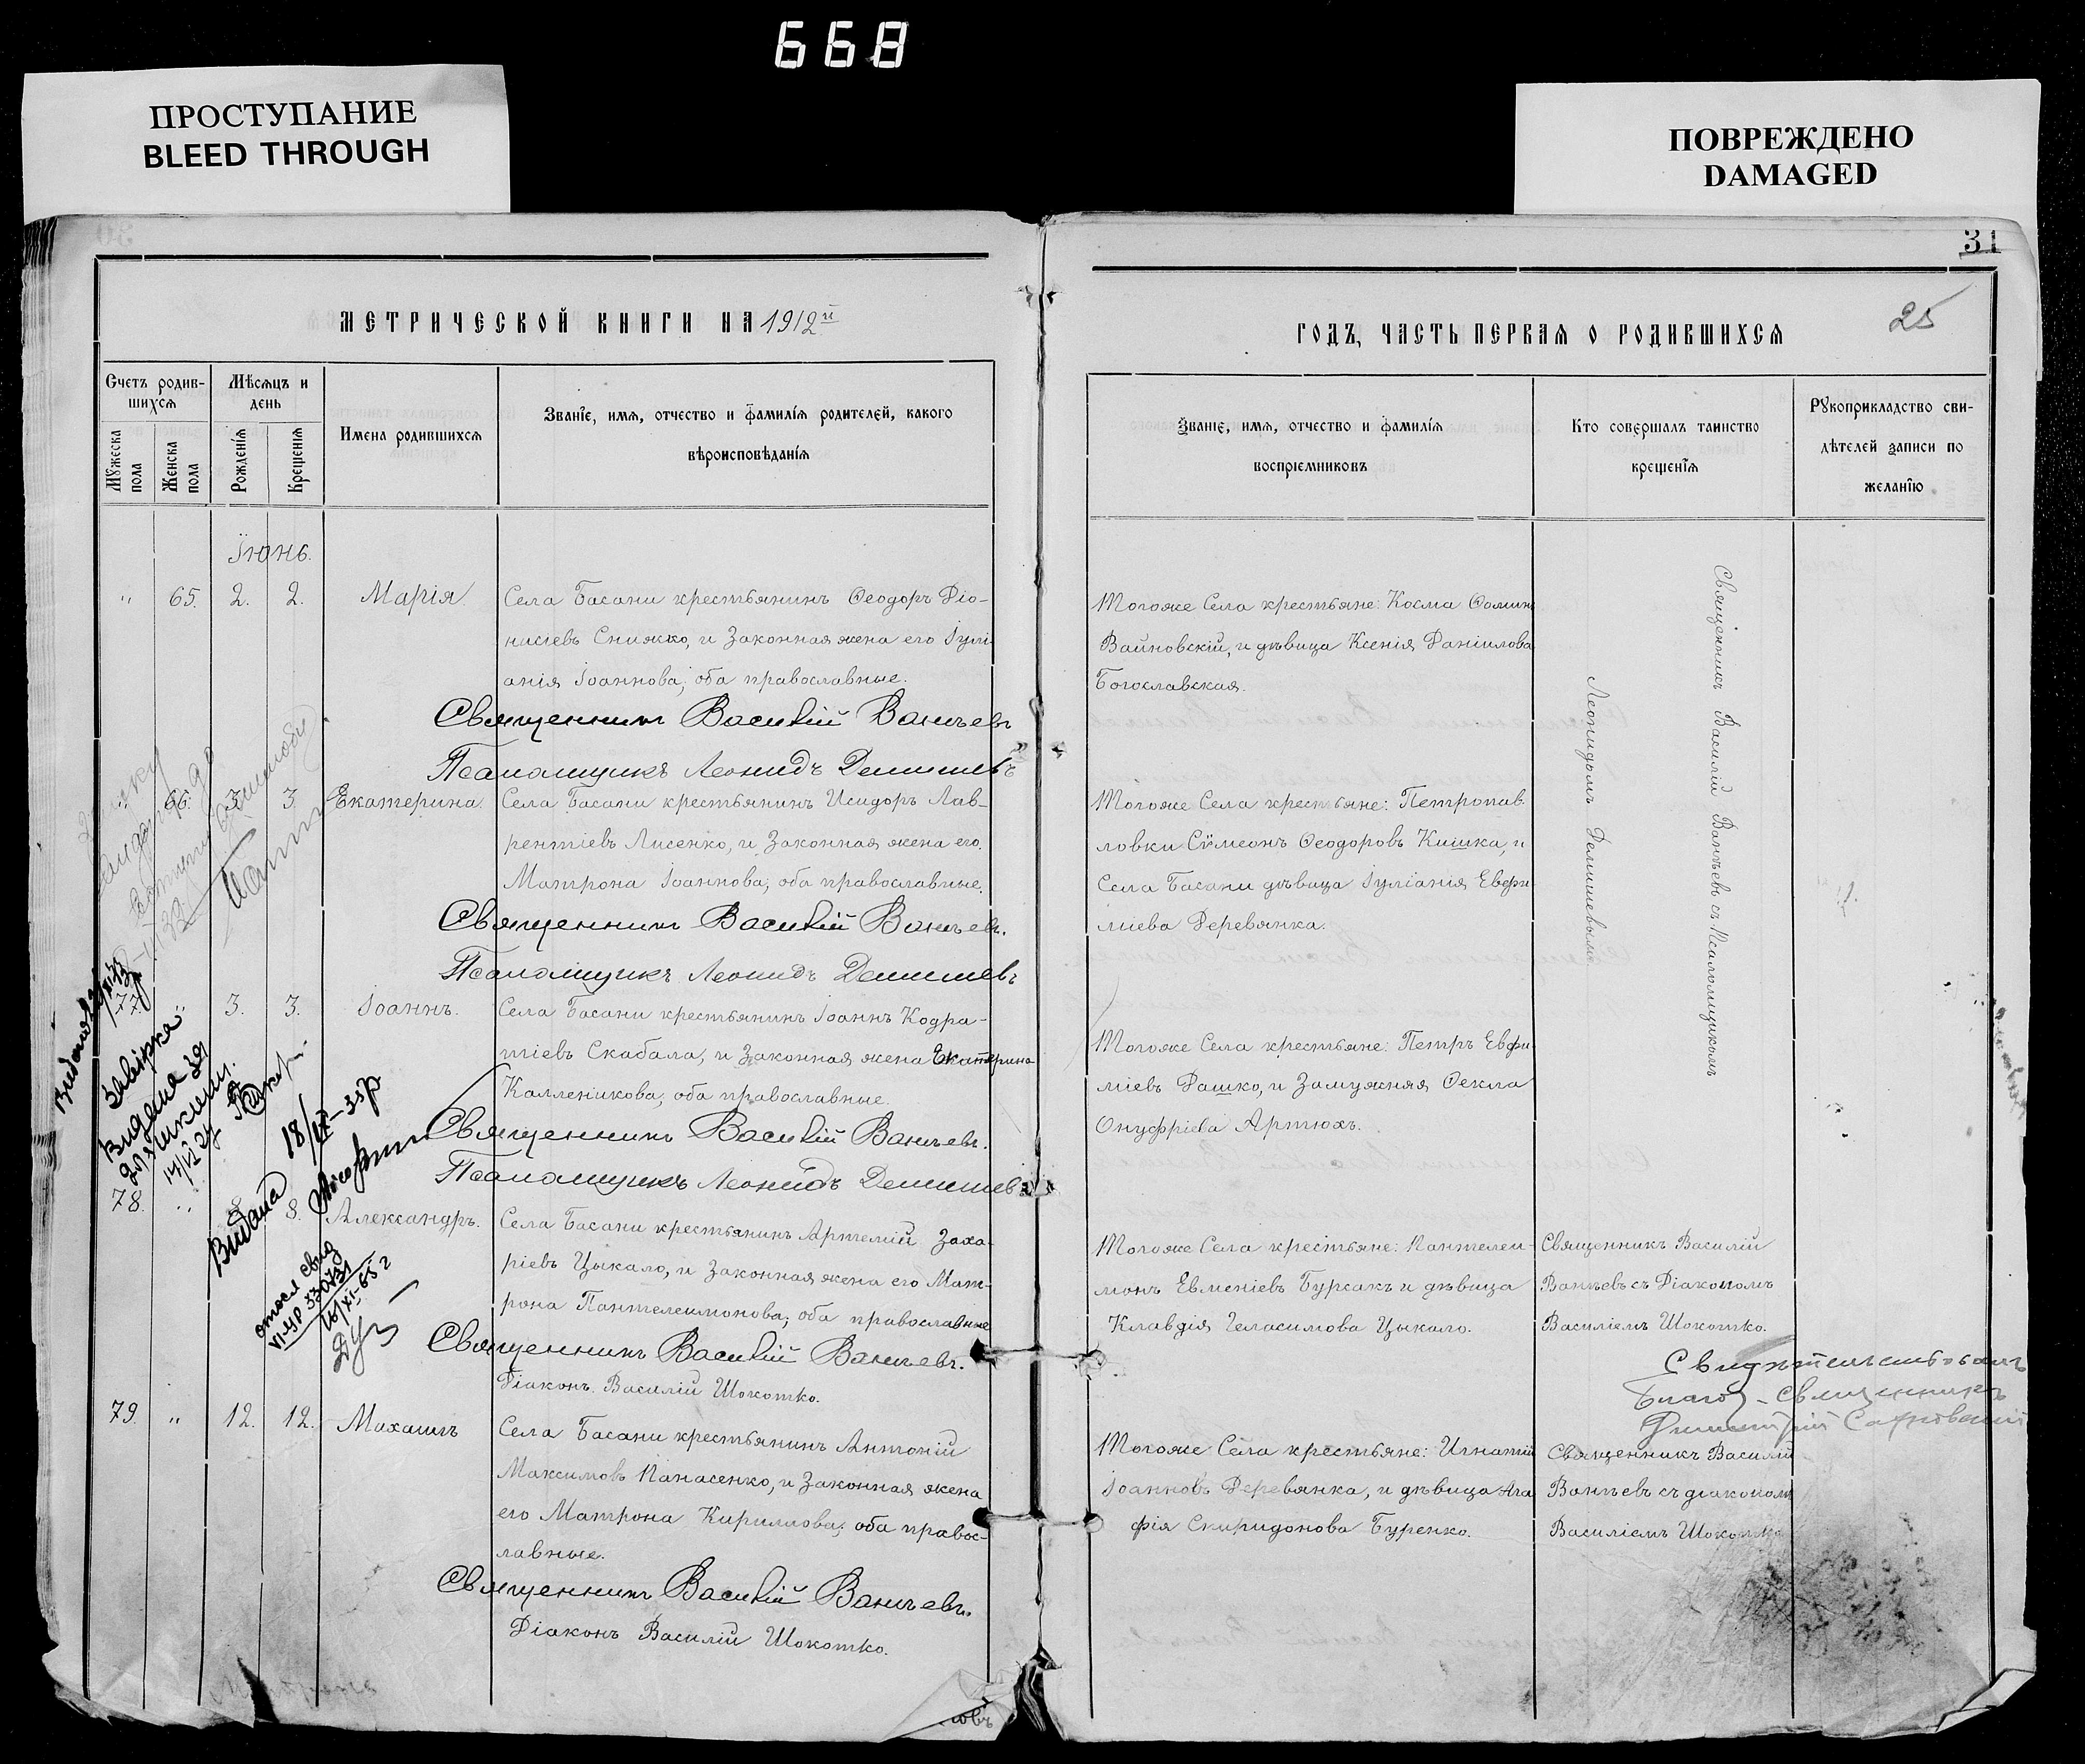 668
ПРОСТУПАНИЕ
BLEED THROUGH
ПОВРЕЖДЕНО
DAMAGED
31
25
МЕТРИЧЕСКОЙ КНИГИ НА 1912й
ГОДЪ, ЧАСТЬ ПЕРВАЯ О РОДИВШИХСЯ
Счетъ родив-
шихся
Мужеска пола
Женска пола
Мѣсяцъ и
день
Рожденія
Крещенія
Имена родившихся
Званіе, имя, отчество и фамилія родителей, какого
вѣроисповѣданія
Званіе, имя, отчество и фамилія
воспріемниковъ
Кто совершалъ таинство
крещенія
Рукоприкладство сви-
дѣтелей записи по
желанію
Іюнь.
" 65. 2. 2. Марія
Села Басани крестьянинъ Ѳеодоръ Діо-
нисіевъ Снижко, и законная жена его Іулі-
анія Іоаннова; оба православные.
Священникъ Василій Ванчевъ
Псаломщикъ Леонидъ Демишевъ
Тогоже Села крестьяне: Косма Ѳоминъ
Вайновскій, и дѣвица Ксенія Даніилова
Богославская.
Священникъ Василій Ванчевъ съ Псаломщикомъ
Леонидомъ Демишевымъ
" 66. 3. 3. Екатерина.
Села Басани крестьянинъ Исидоръ Лав-
рентіевъ Лисенко, и законная жена его
Матрона Іоаннова; оба православные.
Священникъ Василій Ванчевъ.
Псаломщикъ Леонидъ Демишевъ
Тогоже Села крестьяне: Петропав-
ловки Сѵмеонъ Ѳеодоровъ Кишка, и
Села Басани дѣвица Іуліанія Евфи-
міева Деревянка.
77. " 3. 3. Іоаннъ.
Села Басани крестьянинъ Іоаннъ Кодра-
тіевъ Скабала, и законная жена Екатерина
Калленикова; оба православные.
Священникъ Василій Ванчевъ.
Псаломщикъ Леонидъ Демишевъ
Тогоже Села крестьяне: Петръ Евфи-
міевъ Дашко, и замужняя Ѳекла
Онуфріева Артюхъ.
78. " 8. 8. Александръ.
Села Басани крестьянинъ Артемій Заха-
ріевъ Цыкало, и законная жена его Мат-
рона Пантелеимонова; оба православные
Священникъ Василій Ванчевъ.
Діаконъ Василій Шокотко.
Тогоже Села крестьяне: Пантелеи-
монъ Евменіевъ Бурсакъ и дѣвица
Клавдія Геласимова Цыкало.
Священникъ Василій
Ванчевъ съ Діакономъ
Василіемъ Шокотко.
Свидѣтельствовалъ
Благоч. Священникъ
79. " 12. 12. Махаилъ
Села Басани крестьянинъ Антоній
Максимовъ Панасенко, и законная жена
его Матрона Кириллова; оба правос-
лавные.
Священникъ Василій Ванчевъ.
Діаконъ Василій Шокотко.
Тогоже Села крестьяне: Игнатій
Іоанновъ Деревянка, и дѣвица Ага-
фія Спиридонова Буренко.
Священникъ Василій
Ванчевъ съ діакономъ
Василіемъ Шокотко
Видана 18/IX-33р